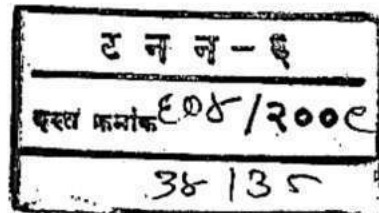 ट न न - ६
दस्त क्रमांक ६०४/२००९
३४ | ३५